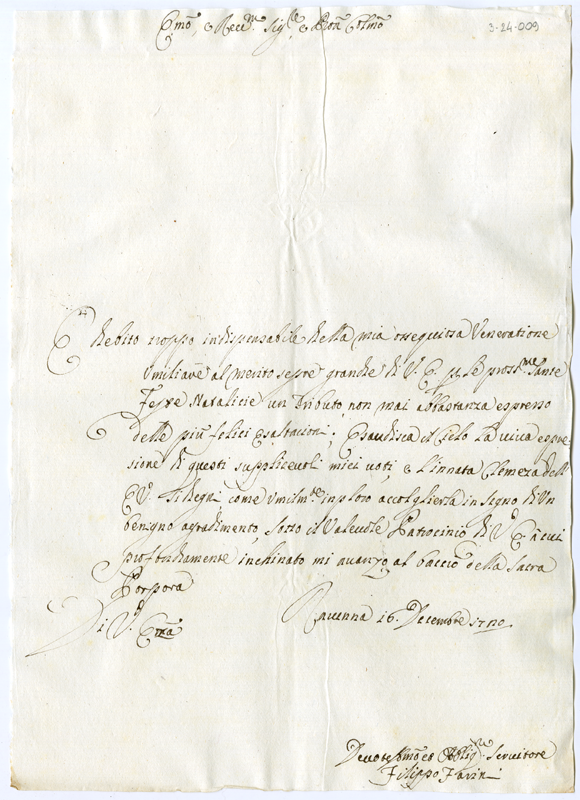 Emo, e Reu.mo Sig.re, e Pron Colmo
3-24-009
E' debito troppo indispensabile della mia ossequiosa Veneratione
Vmiliare al merito sepre grande di V. E. p. le pross.me Sante
Feste Natalicie un Tributo, non mai abbastanza espresso
delle più felici Esaltacioni; Esaudisca il Cielo la viua espre
sione di questi supplicevoli miei voti, e l'innata Clemeza dell
E V. si degni come vmilm.te inploro accoglierla in segno di Vn
benigno agradimento, sotto il Valeuole Patrocinio di V. E. à cui
profondamente inchinato mi auanzo al baccio della Sacra
Porpora
Di V. Emza
Rauenna 16 Decembre 1710.
Deuotissmo ed Oblig.mo Seruitore
Filippo